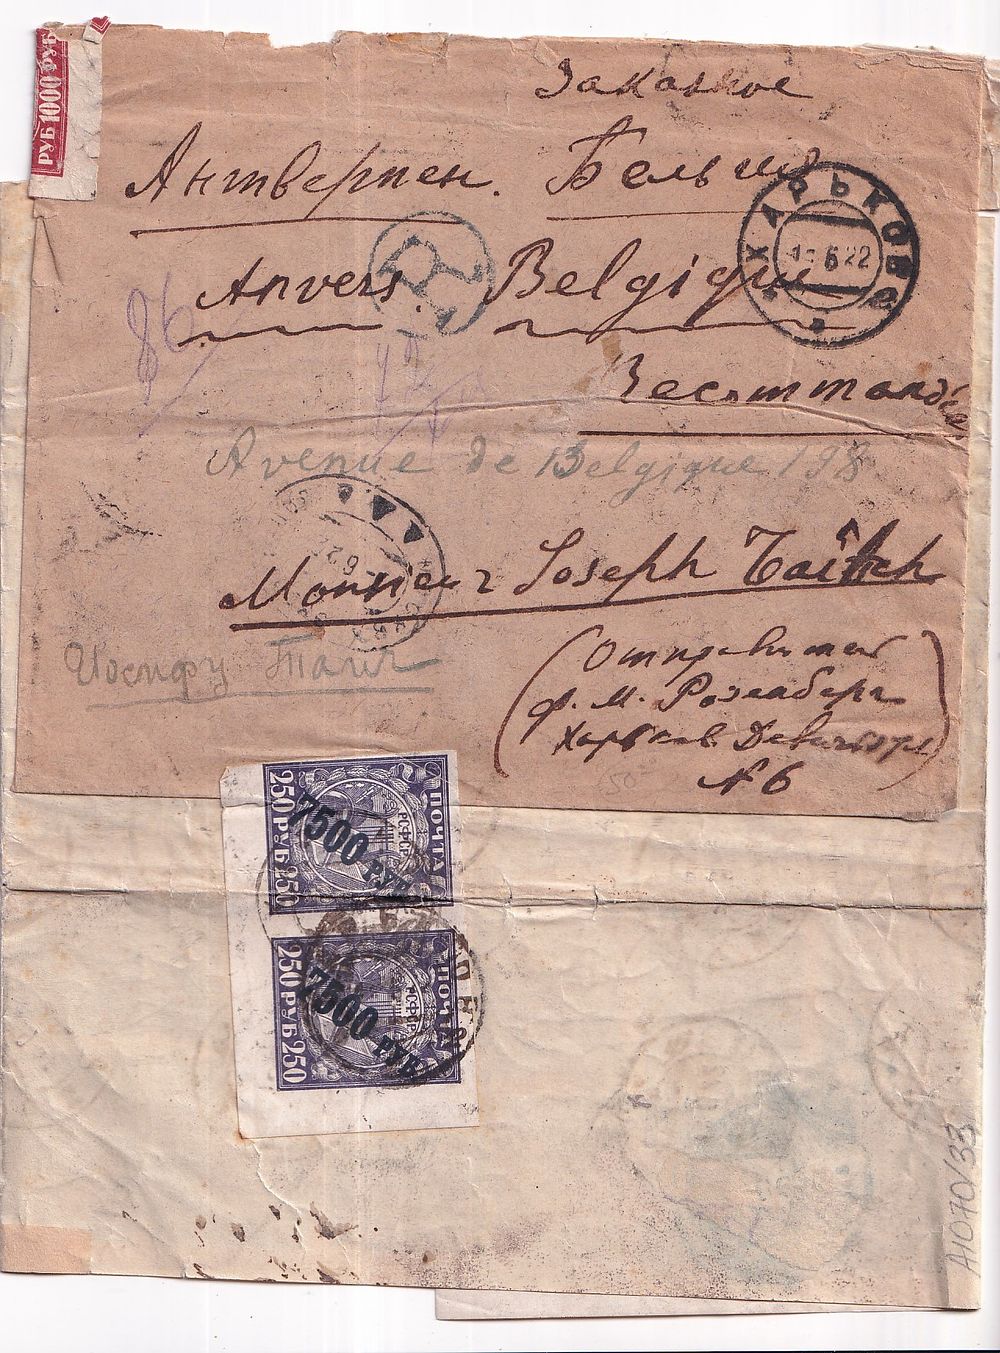 РУБ 1000 РУБ
Заказное
Антверпен. Бельгия
ХАРЬКОВ
6 22
Anvers. Belgique
86
Recommandée
Avenue de Belgique 198
Monsieur Joseph Taitch
Иосифу Таич
(Отправитель
Ф. М. Розенберг
Харьков
№ 6
250 РУБ 250
7500 РУБ.
РСФСР
ПОЧТА
250 РУБ 250
7500 РУБ.
РСФСР
ПОЧТА
A1070/33